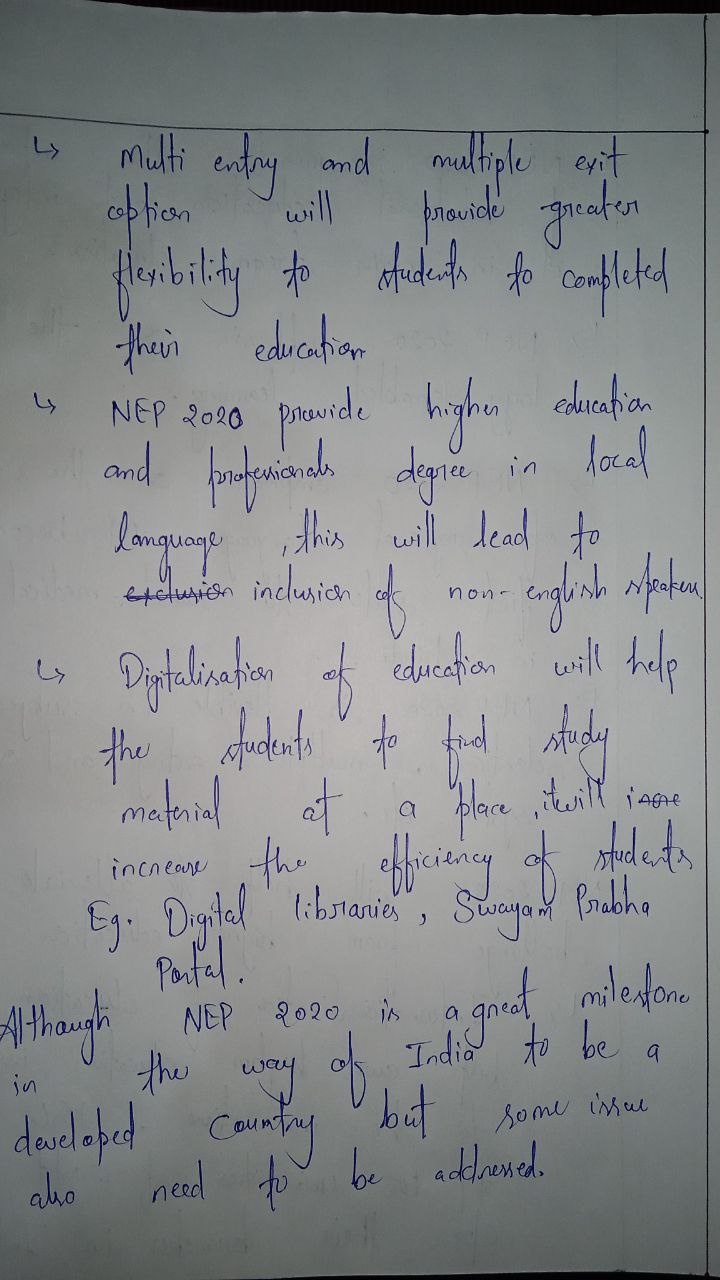 ↳ Multi entry and multiple exit
option will provide greater
flexibility to students to completed
their education
↳ NEP 2020 provide higher education
and professionals degree in local
language, this will lead to
exclusion inclusion of non-english speakers
↳ Digitalisation of education will help
the students to find study
material at a place, it will
increase the efficiency of students
Eg. Digital libraries, Swayam Prabha
Portal.
Although NEP 2020 is a great milestone
in the way of India to be a
developed country but some issue
also need to be addressed.